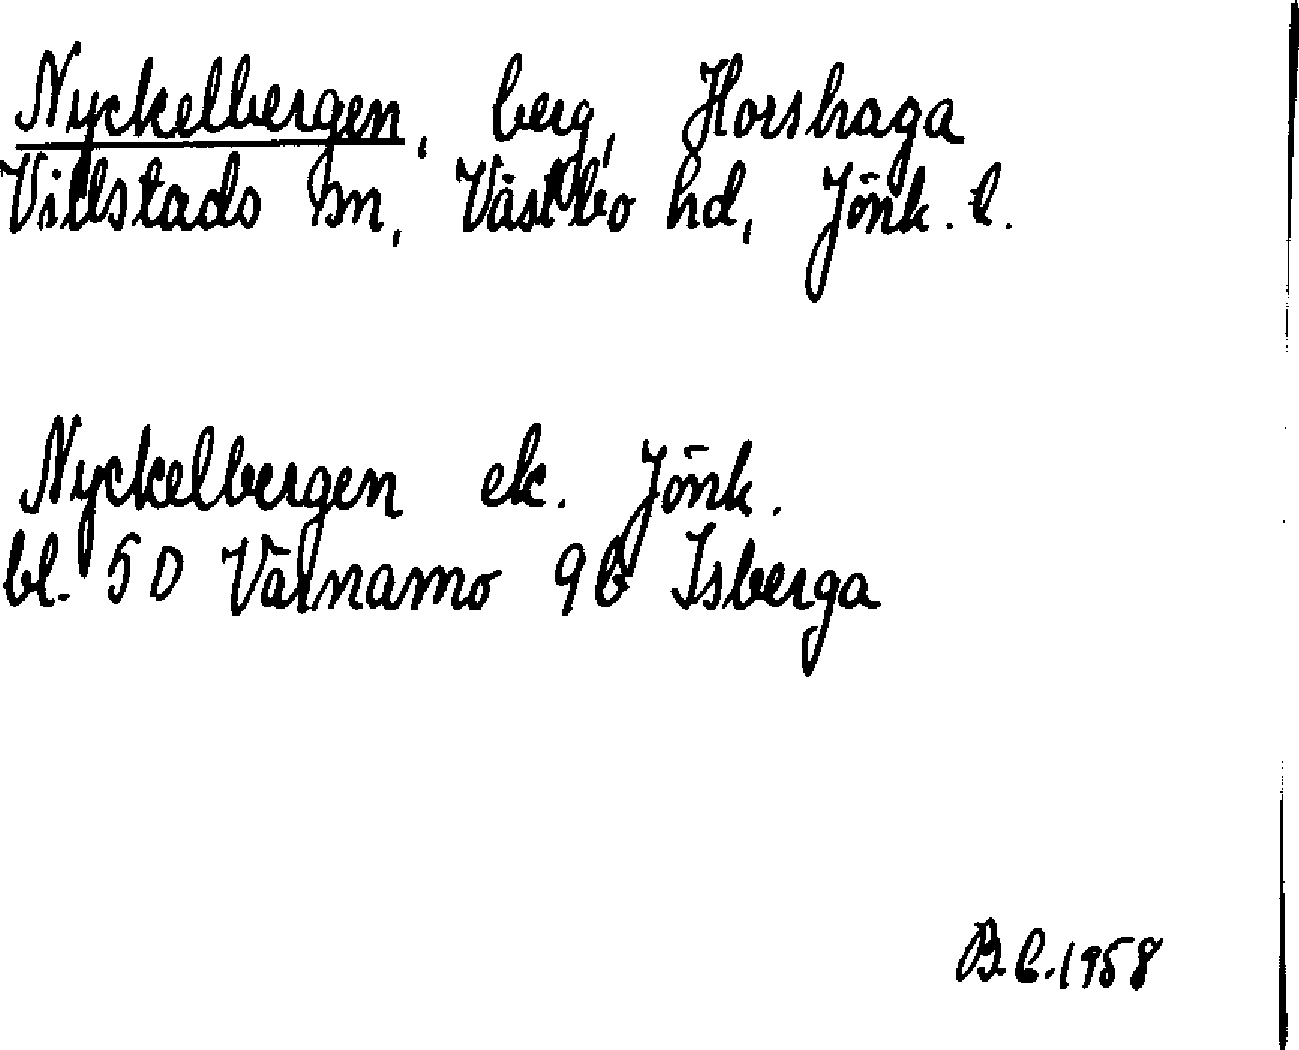 Nyckelbergen, berg, Horshaga
Villstads sn, Västbo hd, Jönk. l.
Nyckelbergen ek. Jönk.
bl. 5D Värnamo 9b Isberga
B.C.1958